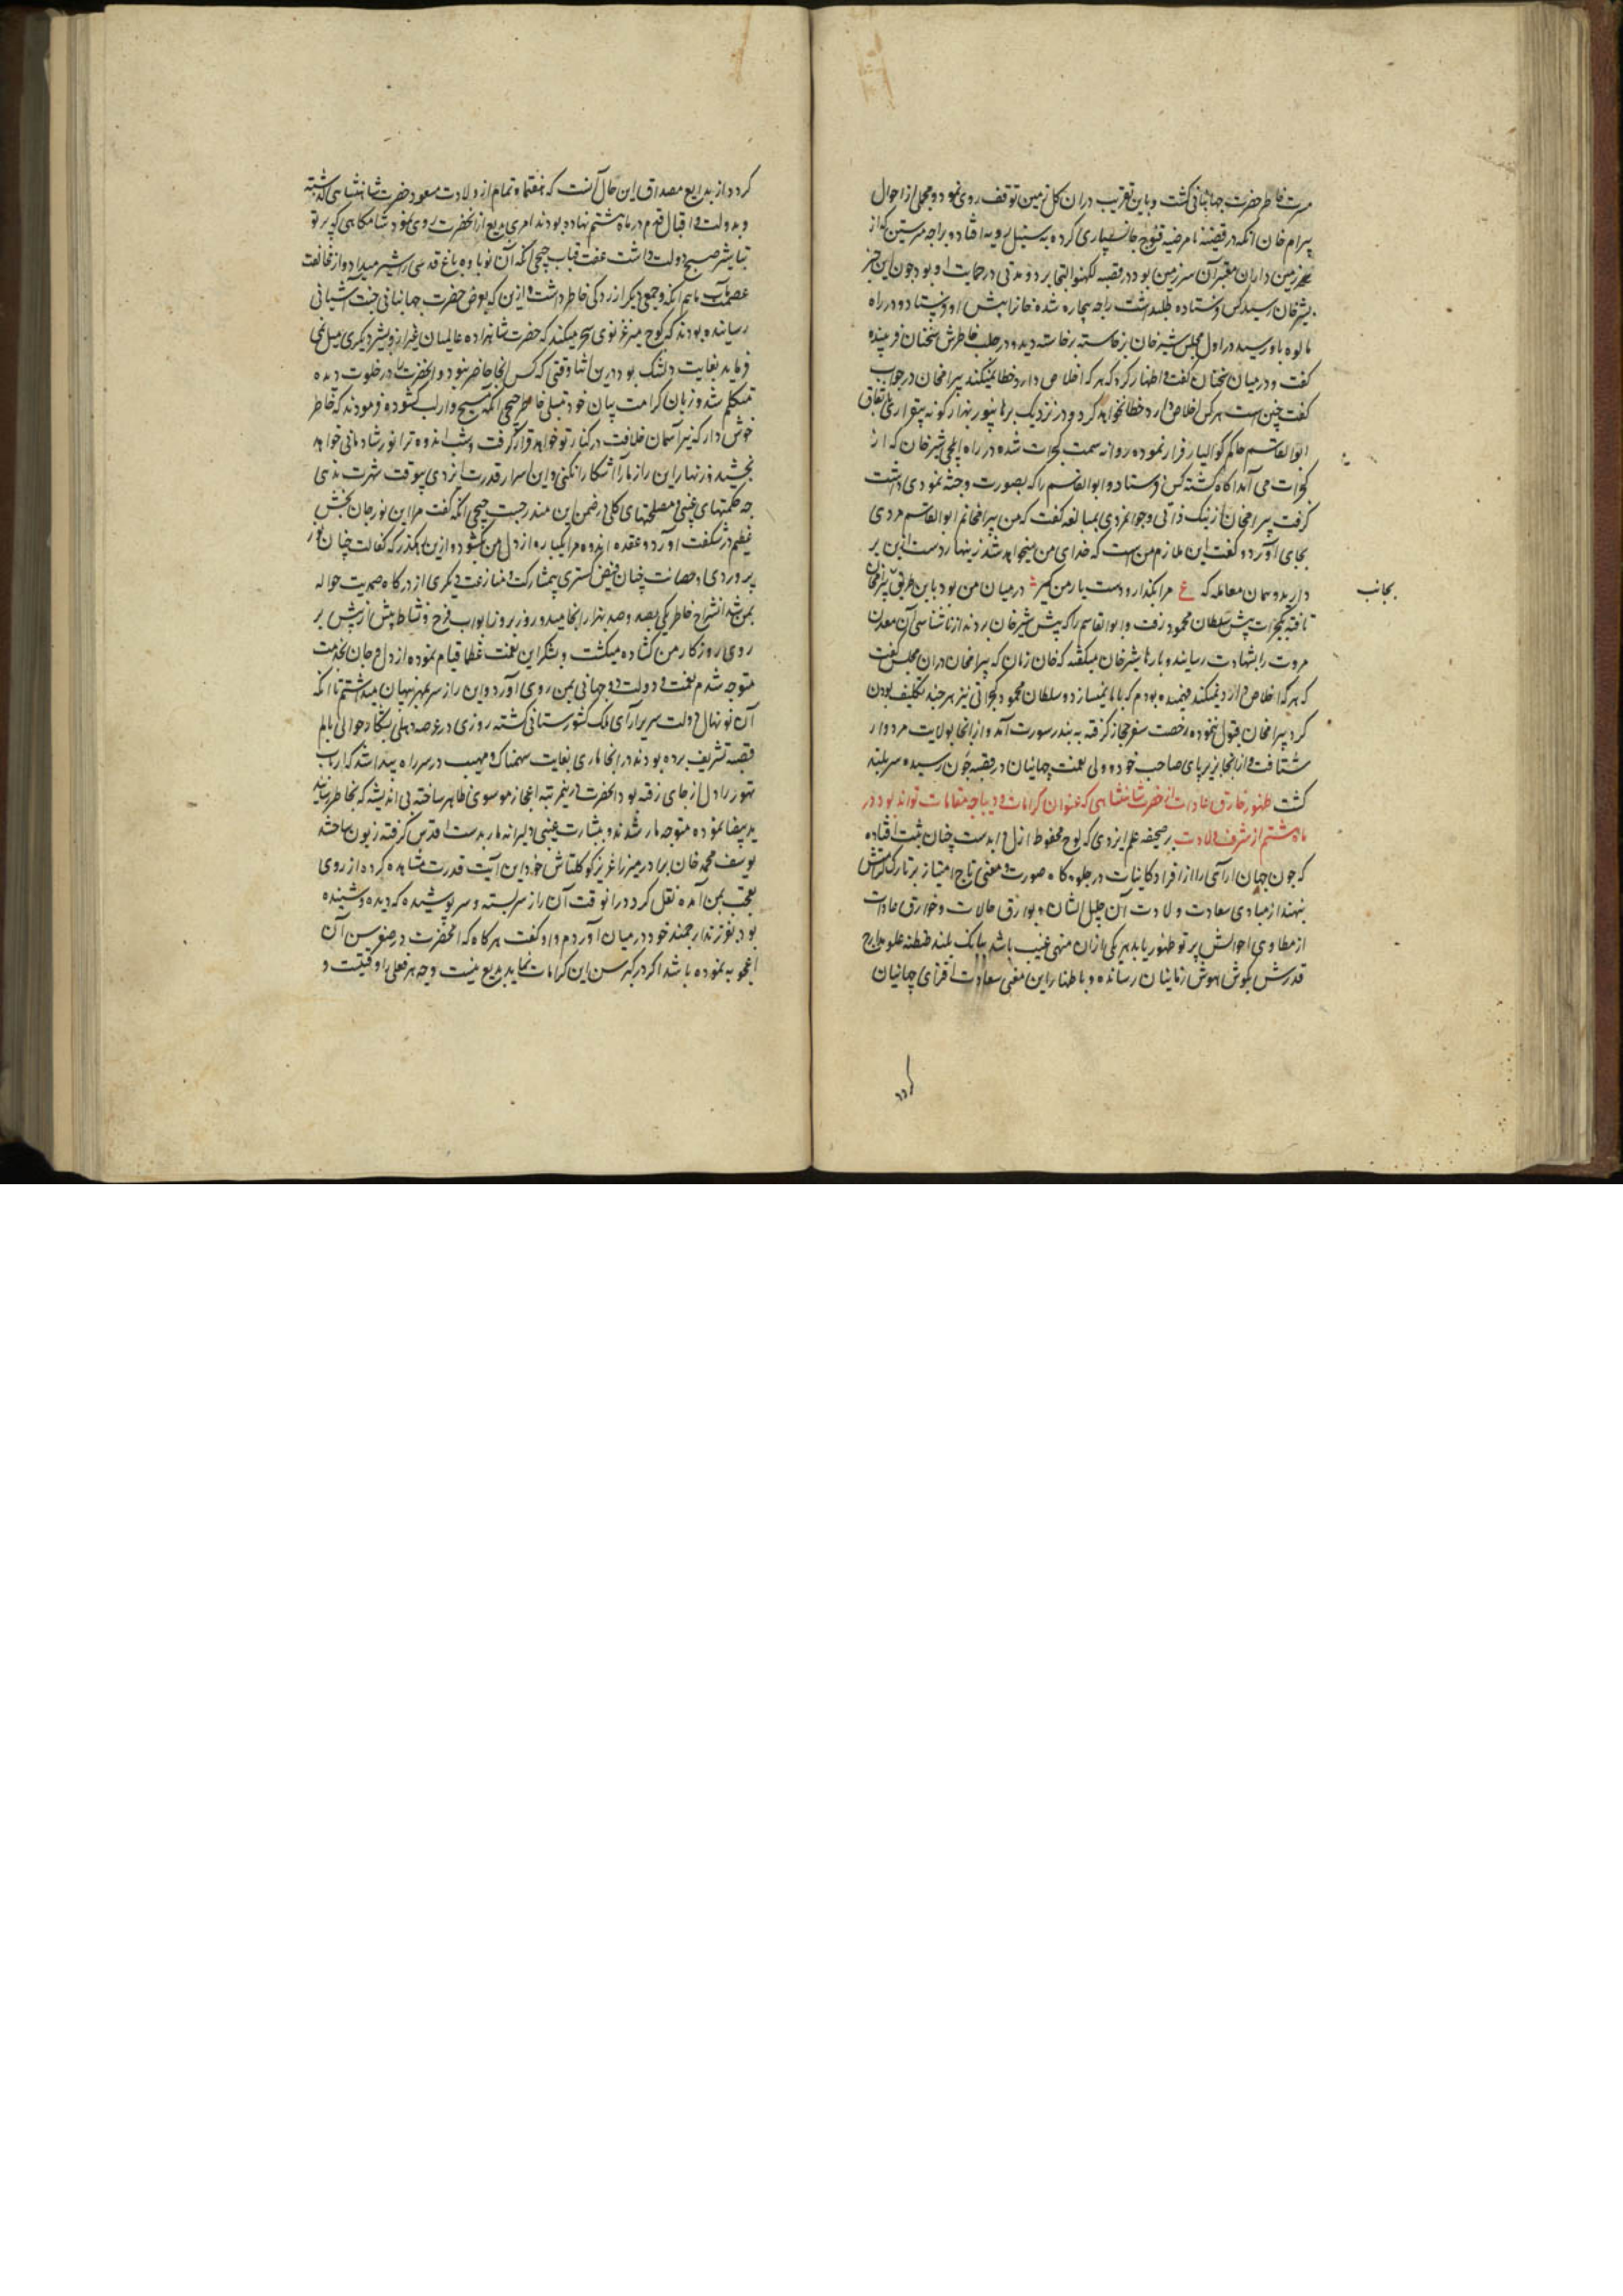 مسرت خاطر حضرت جهانبانی گشت و باین تقریب دران گل زمین توقف روی نمود و مجملی از احوال
بیرام خان آنکه در قضیه نامرضیه قنوج جانسپاری کرده به سنبل رویه افتاد و براجه مترسین که از
زمین داران معتبر آن سرزمین بود در قصبه لکهنو التجا برد و مدتی در حمایت او بود چون این خبر
بشیرخان رسید کس فرستاده طلبداشت راجه بیچاره شده خانرا پیش او فرستاد و در راه
مالوه باو رسید در اول مجلس شیرخان برخاسته دید و در جلب خاطرش سخنان فریبنده
گفت و در میان سخنان گفت و اظهار کرد که هر که اخلاص دارد خطا نمیکند بیرامخان در جواب
گفت چنین است هر کس اخلاص دارد خطا نخواهد کرد و در نزدیک برهانپور بهزار گونه بیقراری باتفاق
ابوالقاسم حاکم گوالیار فرار نموده روانه سمت گجرات شده در راه ایلچی شیرخان که از
گجرات می آمد آگاه گشته کس فرستاد و ابوالقاسم را که بصورت و جثه نمودی داشت
گرفت بیرامخان از نیک ذاتی و جوانمردی بمبالغه گفت که من بیرامخانم ابوالقاسم مردی
بجای آورد و گفت این ملازم من است که فدای من میخواهد شد زینهار دست ازین بر
دارید و همان معامله که ع مرا بگذار و دست یار من گیر در میان من بود باین طریق بیرامخان
بجانب
یافته بگجرات پیش سلطان محمود رفت و ابوالقاسم را که پیش شیرخان بردند از ناشناسی آن معدن
مروت را بشهادت رسانید و بارها شیرخان میگفته که همان زمان که بیرامخان دران مجلس گفت
که هر که اخلاص دارد خطا نمیکند فهمیده بودم که با ما نمیسازد و سلطان محمود گجراتی نیز هر چند تکلیف بودن
کرد بیرامخان قبول ننموده رخصت سفر حجاز گرفته به بندر سورت آمد و از آنجا بولایت هردوار
شتافت و از آنجا بزیر پای صاحب خود و ولی نعمت جهانیان در قصبه جون رسیده سربلند
گشت ظهور خارق عادات از حضرت شاهنشاهی که عنوان کرامات و دیباچه مقامات تواند بود در
ماه هشتم از شرف ولادت بر صحیفه علم ایزدی که لوح محفوظ ازل و ابد ست چنان ثبت افتاده
که چون جهان آرائی را از افراد کاینات در جلوه گاه صورت و معنی تاج امتیاز بر تارک
نهند از مبادی سعادت ولادت آن جلیل الشان بوارق حالات و خوارق عادات
از مطاوی احوالش پرتو ظهور یابد هر یکی ازان منهی غیب باشد ببانگ بلند طنطنه علو مدارج
قدرش بگوش هوش زمانیان رسانده و باظهار این معنی سعادت افزای جهانیان
گردد
گردد از بدایع مصداق این حال آنست که هفتماه تمام از ولادت مسعود حضرت شاهنشاهی گذشته
و بدولت و اقبال قدم در ماه هشتم نهاده بودند امری بدیع از آنحضرت روی نمود شامگاهی که پرتو
تباشیر صبح دولت داشت عفت قباب جیجی انگه آن نوباوه باغ قدسی را شیر میداد و از مخالفت
عصمت مآب ماهم انگه و جمعی دیگر آزردگی خاطر داشت ازین که بعرض حضرت جهانبانی جنت آشیانی
رسانیده بودند که کوچ میرغزنوی سحر میکند که حضرت شاهزاده عالمیان غیر از بشیر دیگری میل نمی
فرماید بغایت دلتنگ بود درین اثنا وقتی که کس آنجا حاضر نبود و آنحضرت در خلوت دیده
متکلم شد و زبان کرامت بیان خود بتسلی خاطر جیجی انگه مسیح وار لب گشود و فرمودند که خاطر
خوش دار که نیر آسمان خلافت در کنار تو خواهد قرار گرفت و شب اندوه ترا نور شادمانی خواهد
بخشید و زنهار این راز ما را آشکارا نکنی و این اسرار قدرت ایزدی بیوقت شهرت ندهی
چه حکمتهای غیبی و مصلحتهای کلی در ضمن این مندرجست جیجی انگه گفت مرا این نوید جان بخش
عظیم در شگفت آورد و عقده اندوه مرا یکبار از دل من گشود و ازین رهگذر که کفالت چنان نور
پروردی و حضانت چنان فیض گستری بیمشارکت و منازعت دیگری از درگاه صمدیت حواله
بمن شد انشراح خاطر یکی بصد و صد بهزار انجامید و روز بروز ابواب فرح و نشاط بیش از پیش بر
روی روزگار من گشاده میگشت و بشکر این نعمت عظما قیام نموده از دل و جان بخدمت
متوجه شدم نعمت و دولت دو جهانی بمن روی آورد و این راز سر بمهر پنهان میداشتم تا آنکه
آن نونهال دولت سریر آرای ملک کشورستانی گشته روزی در عرصه دهلی بشکار حوالی پالم
قصبه تشریف برده بودند در آنجا ماری بغایت سهمناک و مهیب در سر راه پیدا شد که ارباب
تهور را دل از جای رفته بود آنحضرت درین مرتبه اعجاز موسوی ظاهر ساخته بی اندیشه که بخاطر رسانند
ید بیضا نموده متوجه مار شدند و ببشارت غیبی دلیرانه مار بدست اقدس گرفته زبون ساختند
یوسف محمد خان برادر میرزا عزیز کوکلتاش خود این آیت قدرت مشاهده کرده از روی
تعجب بمن آمده نقل کرد در آنوقت آن راز سربسته و سر پوشیده که دیده و شنیده
بودم بفرزند ارجمند خود در میان آوردم و گفت هرگاه که آنحضرت در صغر سن آن
اعجوبه نموده باشد اگر در کبر سن این کرامات نماید بدیع نیست و چه هر فعلی را وقتیست و